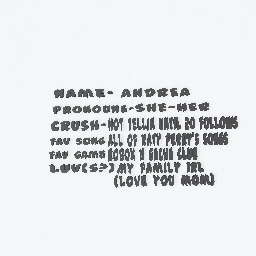 NAME- ANDREA
PRONOUNS-SHE-HER
CRUSH-NOT TELLIN UNTIL 20 FOLLOWS
FAV SONG ALL OF KATY PERRY'S SONGS
FAV GAMES ROBOX N GACHA CLUB
LUV(S?) MY FAMILY IRL
(LOVE YOU MOM)